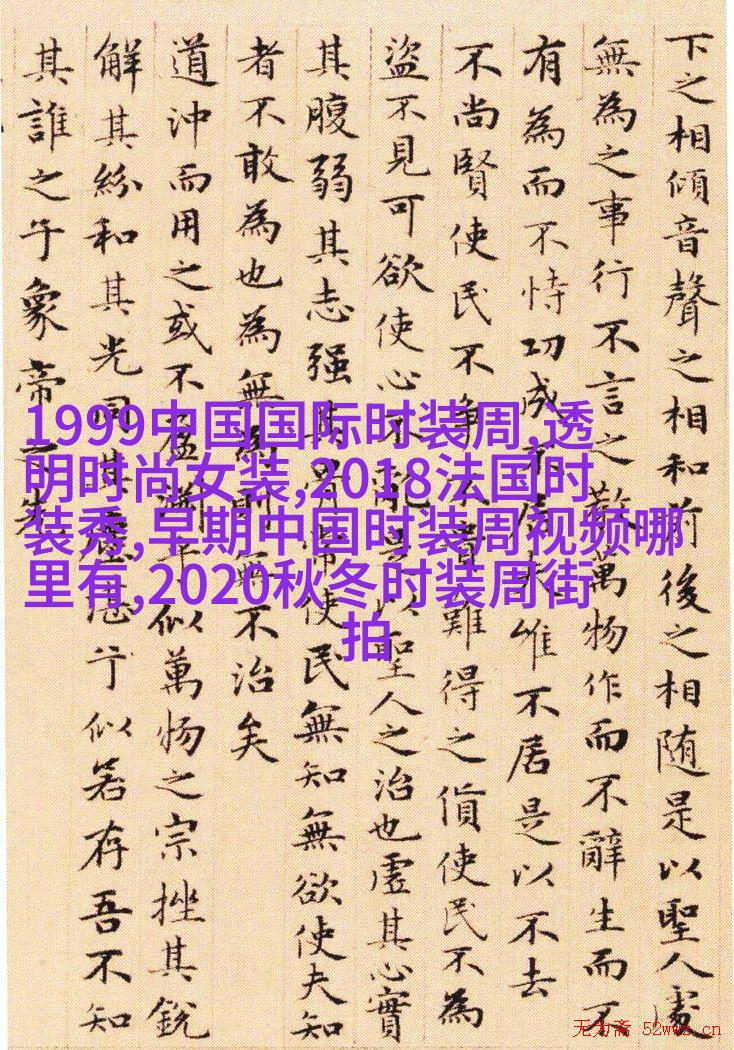 下之相傾音聲之相和前後之相随是以聖人處
無為之事行不言之教萬物作而不辭生而不
有為而不恃功成不居夫惟不居是以不去
不尚賢使民不争不貴難得之貨使民不為
盜不見可欲使心不亂是以聖人之治也虚其心實
其腹弱其志强其骨常使民無知無欲使夫知
者不敢為也為無為則無不治矣
道沖而用之或不盈淵乎似萬物之宗挫其銳
解其紛和其光同其塵湛兮似若存吾不知
其誰之子象帝之先
1999中国国际时装周,透
明时尚女装,2018法国时
装秀,早期中国时装周视频哪
里有,2020秋冬时装周街
拍
无为斋 52wwz.cn